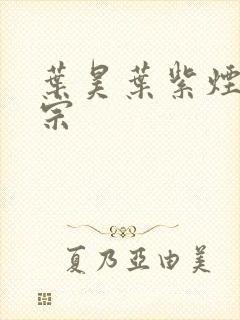 葉昊葉紫煙
宗
夏乃亞由美